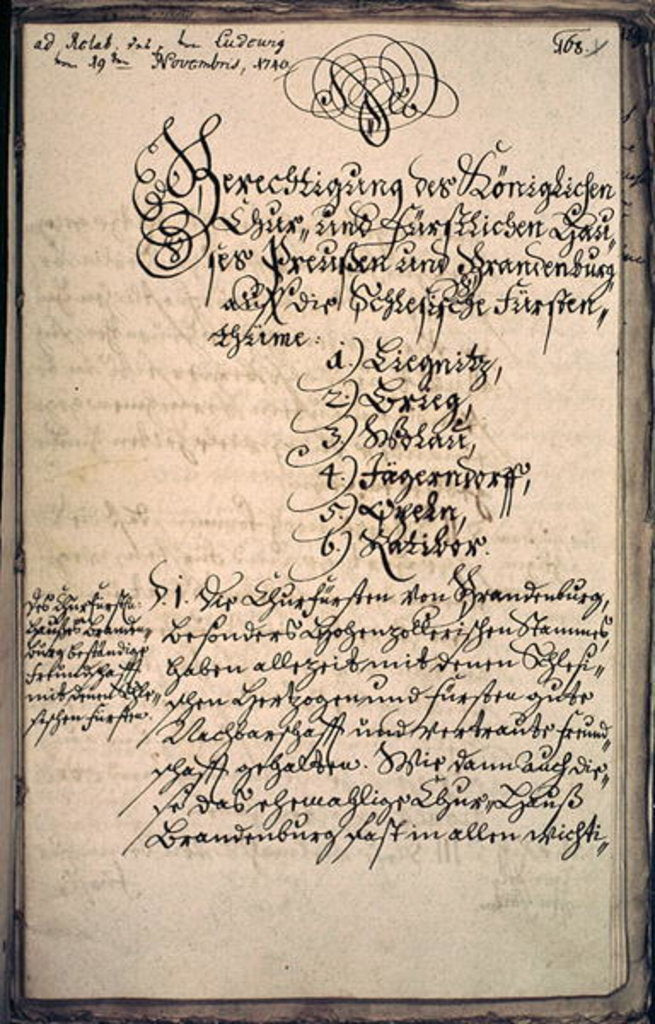 ad Relat. des, von Ludewig
vom 19ten Novembris, 1740.
168.
Berechtigung des Königlichen
Chur,, und Fürstlichen Hau-
ses Preußen und Brandenburg
auf die Schlesische Fürsten,,
thüme:
1.) Liegnitz,
2.) Brieg,
3.) Wohlau,
4.) Jägerndorff,
5.) Oppeln,
6.) Ratibor.
Des Churfürstl:
Hauses Branden-
burg beständige
Freundschafft
mit denen Schle-
sischen Fürsten.
§. 1. Die Churfürsten von Brandenburg,
besonders Hohenzollerischen Stammes,
haben allezeit mit denen Schlesi-
schen Hertzogen und Fürsten gute
Nachbarschafft und vertraute Freund-
schafft gehalten. Wie dann auch die-
se das ehemahlige Chur-Hauß
Brandenburg fast in allen wichti-